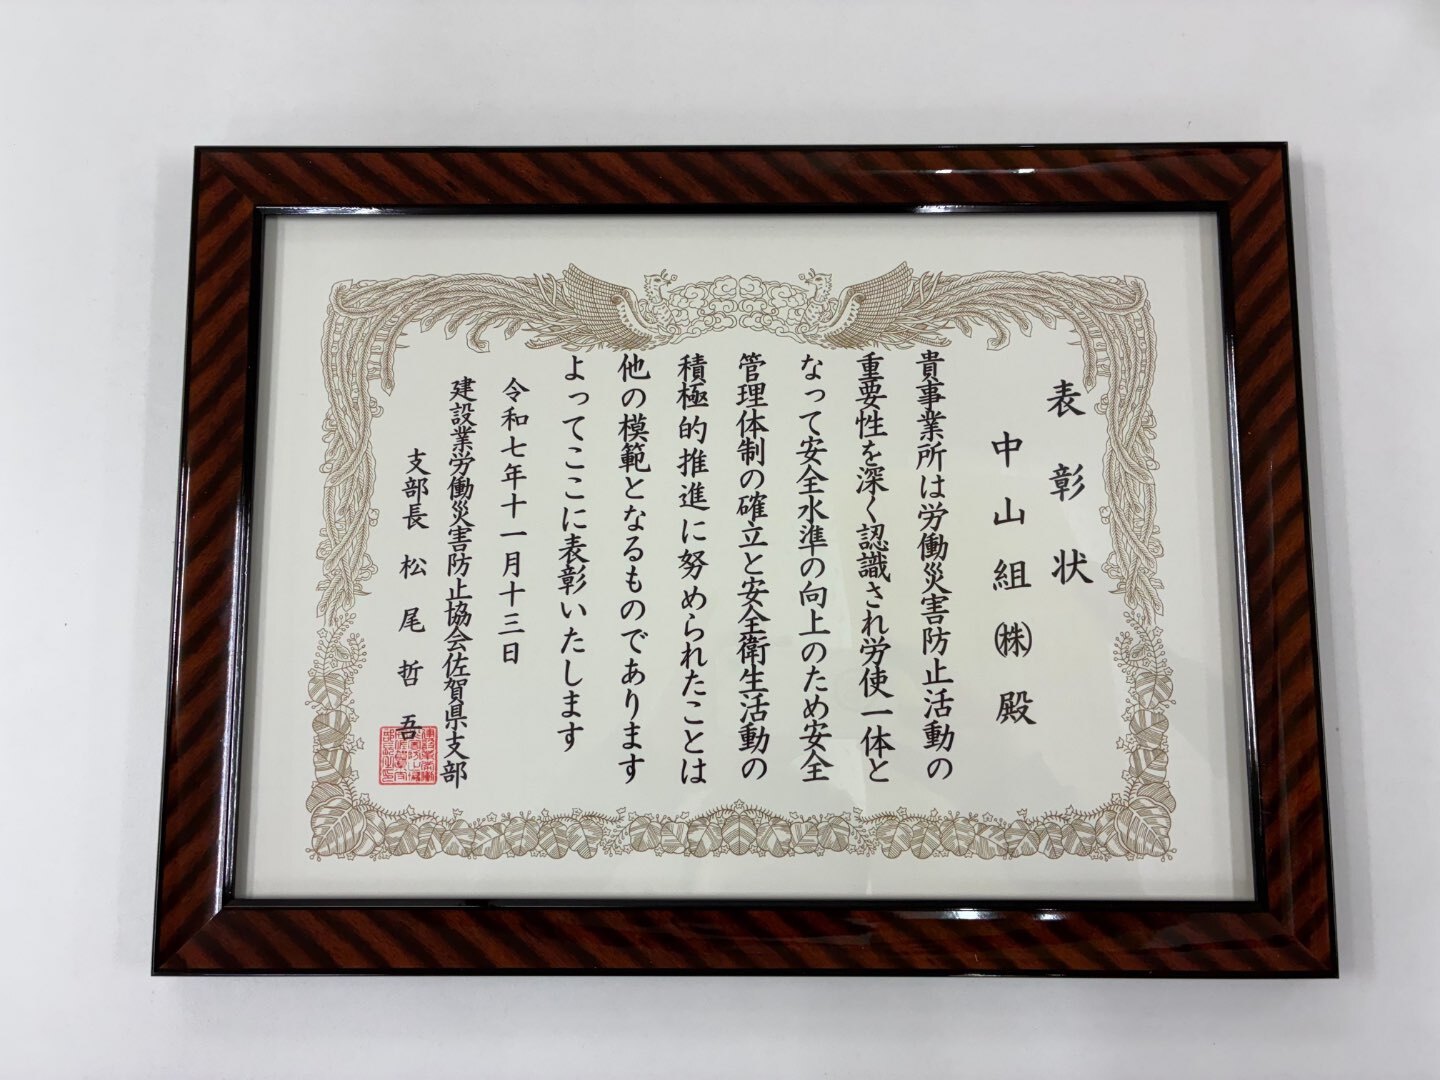 表彰状
中山組㈱殿
貴事業所は労働災害防止活動の
重要性を深く認識され労使一体と
なって安全水準の向上のため安全
管理体制の確立と安全衛生活動の
積極的推進に努められたことは
他の模範となるものであります
よってここに表彰いたします
令和七年十一月十三日
建設業労働災害防止協会佐賀県支部
支部長 松尾哲吾